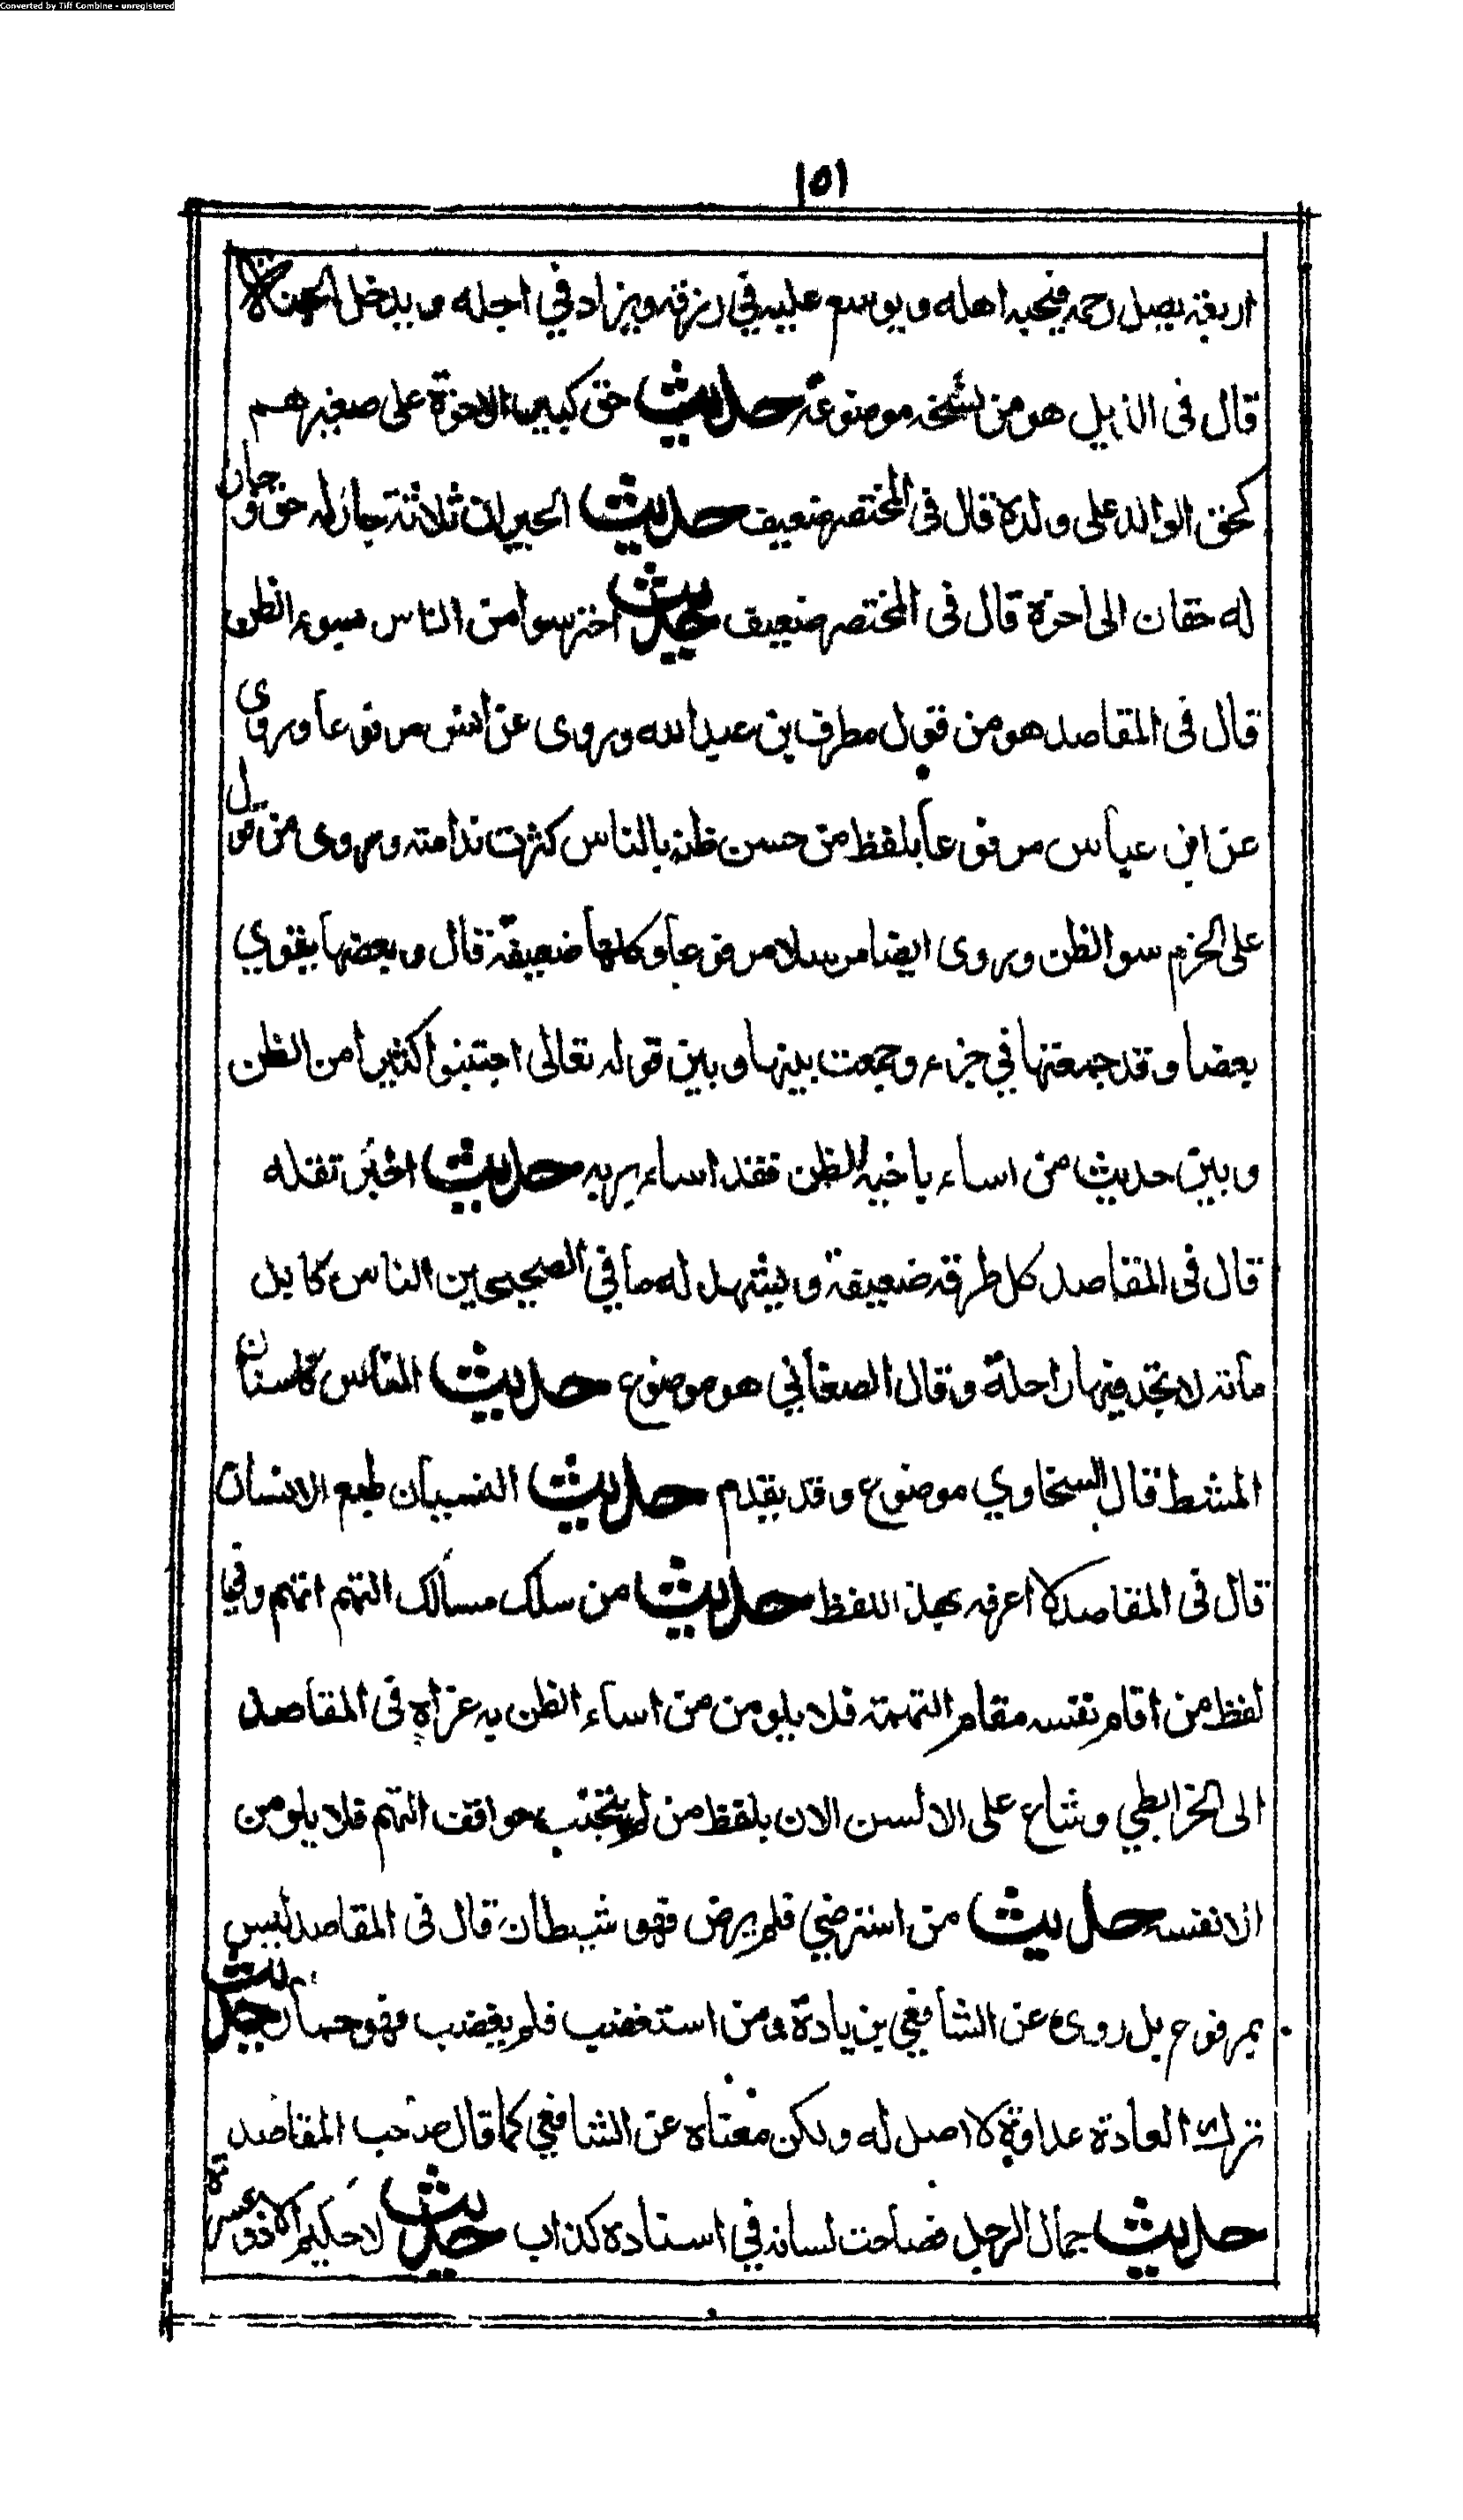 Converted by Tiff Combine - unregistered
١٥١
اربعة يصل رحمه فيحبه اهله ويوسع عليه في رزقه ويزاد في اجله ويدخل الجنة
قال فى الذيل هو من نسخة موضوعة حديث حق كبير الاخوة على صغيرهم
كحق الوالد على ولده قال فى المختصر ضعيف حديث الجيران ثلاثة جار له حق وجار
له حقان الى اخره قال فى المختصر ضعيف حديث احترسوا من الناس بسوء الظن
قال فى المقاصد هو من قول مطرف بن عبد الله وروى عن انس مرفوعا وروى
عن ابن عباس مرفوعا بلفظ من حسن ظنه بالناس كثرت ندامته وروى من قول
على الحزم سو الظن وروى ايضا مرسلا مرفوعا وكلها ضعيفة قال وبعضها يقوي
بعضا وقد جمعتها في جزء وجمعت بينها وبين قوله تعالى اجتنبوا كثيرا من الظن
وبين حديث من اساء باخيه الظن فقد اساء بربه حديث اخبر تقله
قال فى المقاصد كل طرقه ضعيفة ويشهد له ما في الصحيحين الناس كابل
مائة لا تجد فيها راحلة وقال الصغاني هو موضوع حديث الناس كاسنان
المشط قال السخاوي موضوع وقد تقدم حديث النسيان طبع الانسان
قال فى المقاصد لا اعرفه بهذا اللفظ حديث من سلك مسالك التهم اتهم وفي
لفظ من اقام نفسه مقام التهمة فلا يلومن من اساء الظن به عزاه فى المقاصد
الى الخرائطي وشاع على الالسن الان بلفظ من لم يتجنب مواقف التهم فلا يلومن
الا نفسه حديث من استرضي فلم يرض فهو شيطان قال فى المقاصد ليس
بمرفوع بل روى عن الشافعي بزيادة ومن استغضب فلم يغضب فهو حمار حديث
ترك العادة عداوة لا اصل له ولكن معناه عن الشافعي كما قال صاحب المقاصد
حديث جمال الرجل فصاحت لسانه في اسناده كذاب حديث لا حكيم الا ذو عسرة